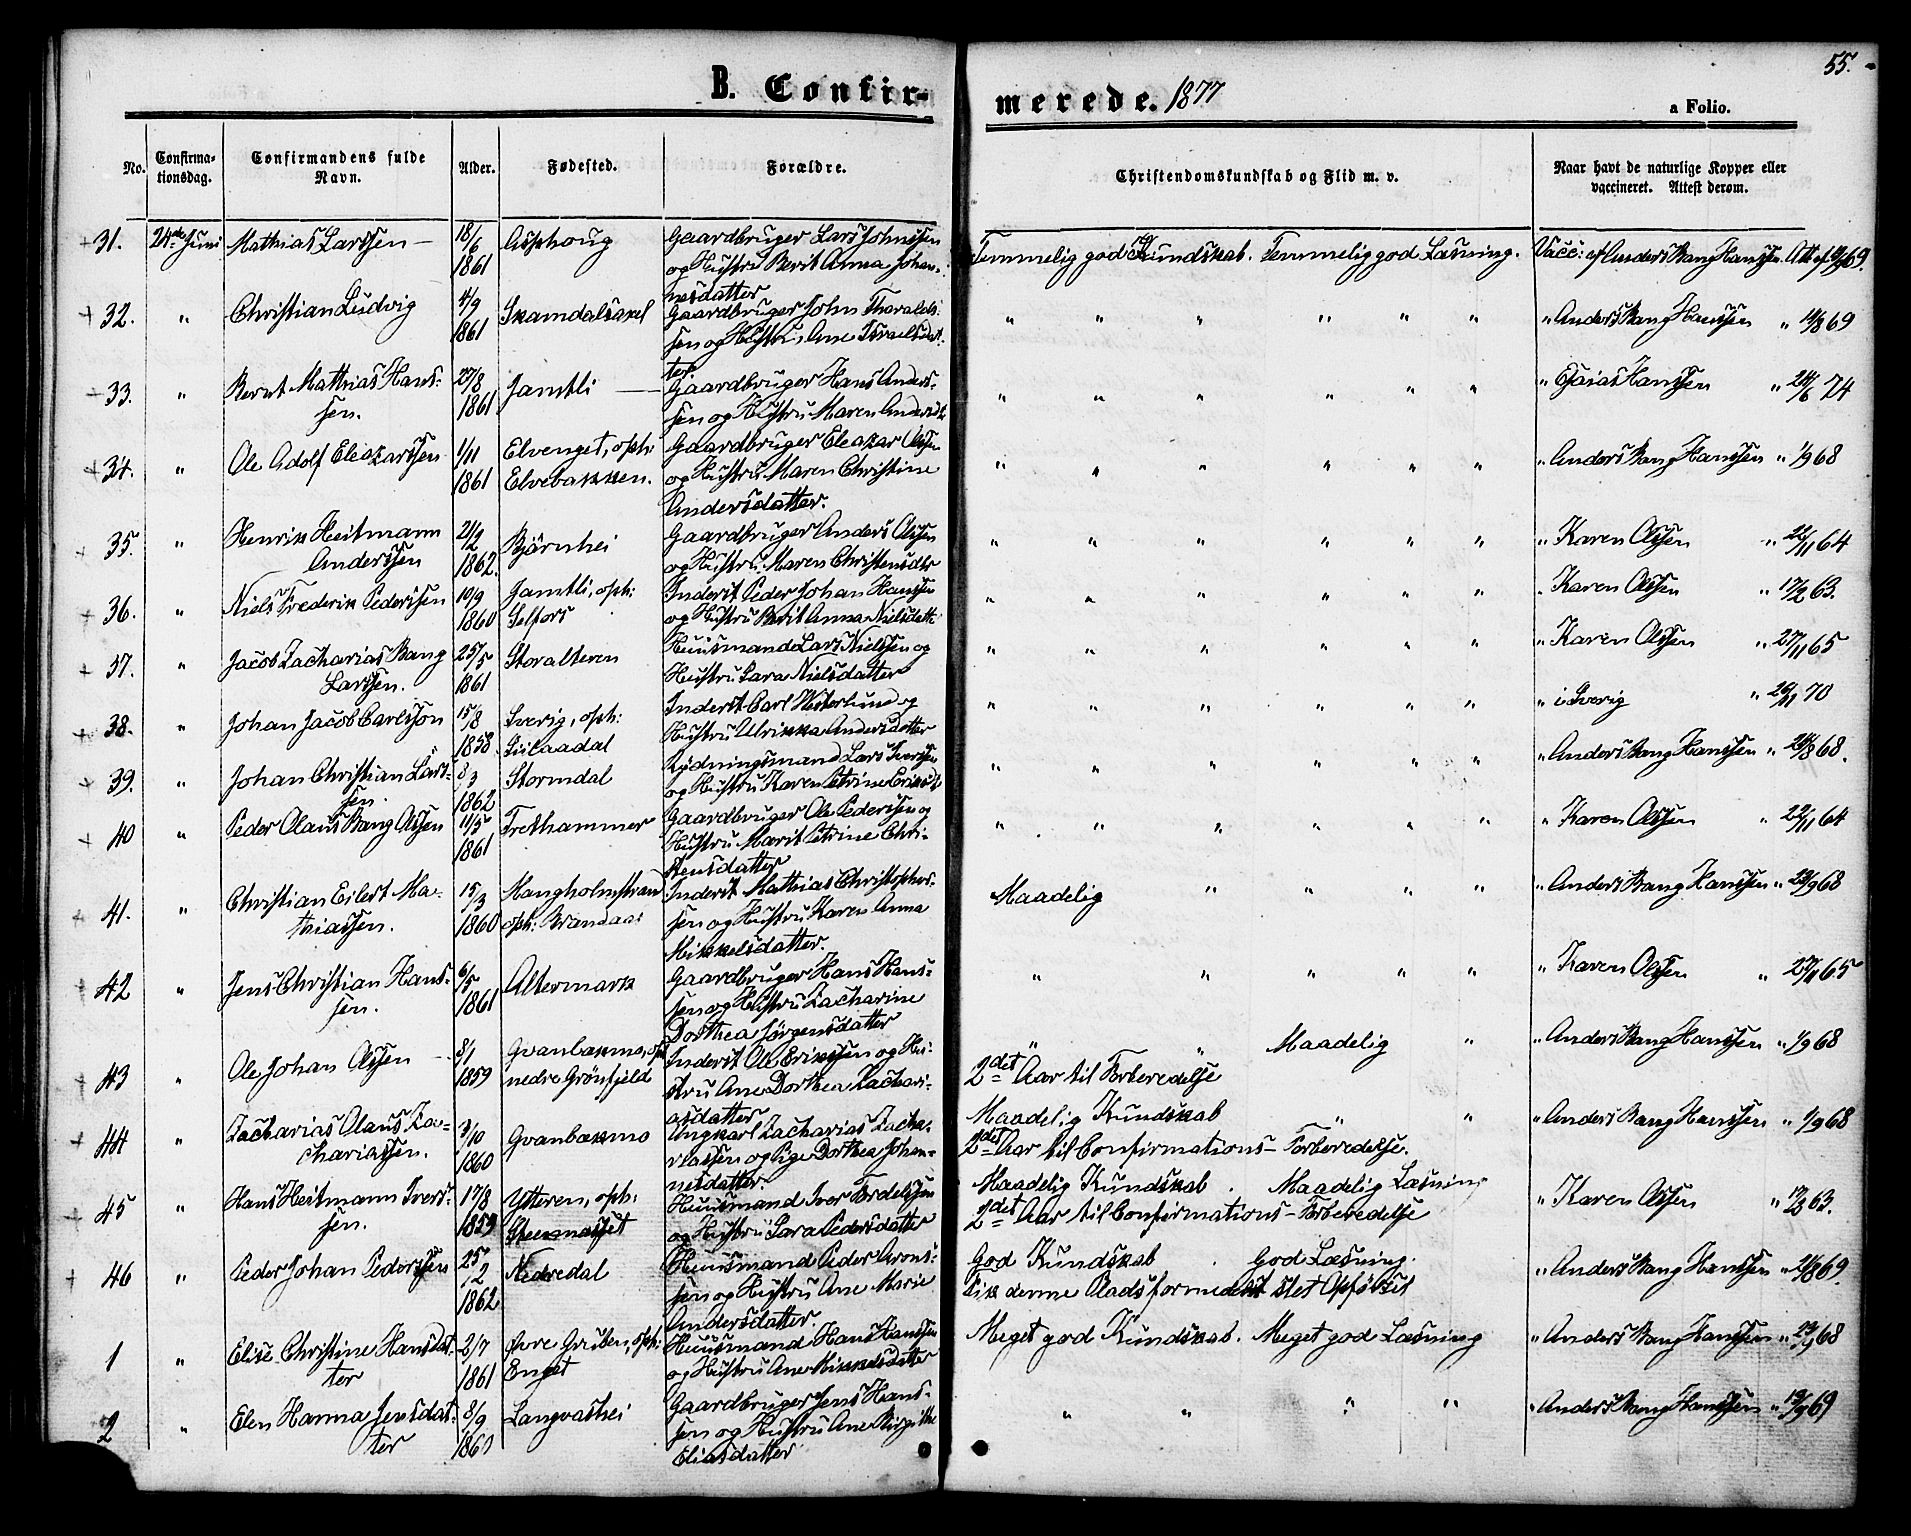 55.
B. Confirmerede. 1877
a Folio.
No. Confirmationsdag. Confirmandens fulde Navn. Alder. Fødested. Forældre. Christendomskundskab og Flid m. v. Naar havt de naturlige Kopper eller vaccineret. Attest derom.
31. 24de Juni Mathias Larssen 18/6 1861 Asphoug Gaardbruger Lars Johnssen og Hustru Berit Anna Johannesdatter Temmelig god Kundskab. Temmelig god Læsning. Vacc: af Anders Bang Hanssen. Att. af 69.
32. " Christian Ludvig 4/9 1861 Skamdalsaxel Gaardbruger John Tharalds sen og Hustru Ane Israelsdatter. " " " " " " " Anders Bang Hanssen " 14/8 69
33. " Bernt Mathias Hanssen. 27/8 1861 Jamtli Gaardbruger Hans Anderssen og Hustru Maren Andersd. " " " " " " " Esaias Hanssen " 24/6 74
34. " Ole Adolf Eleazarssen 1/11 1861 Elvenget, oph: Elvebakken. Gaardbruger Eleazar Olssen og Hustru Maren Christine Andersdatter. " " " " " " " Anders Bang Hanssen " 1/9 68
35. " Henrik Heitmann Anderssen 21/2 1862. Bjørnhei Gaardbruger Anders Olssen og Hustru Maren Christensdtr " " " " " " " Karen Olssen " 22/11 64
36. " Niels Frederik Pederssen 10/9 1860 Jamtli, oph: Selfors Inderst Peder Johan Hanssen og Hustru Berit Anna Nielsdatt: " " " " " " " Karen Olssen " 17/2 63.
37. " Jacob Zacharias Bang Larssen. 25/5 1861 Storalteren Huusmand Lars Nielssen og Hustru Sara Nielsdatter " " " " " " " Karen Olssen " 27/11 65
38. " Johan Jacob Carlsson 15/8 1858. Sverig, oph: Inderst Carl Westerlund og Hustru Ulrikka Andersdatter " " " " " " " i Sverig " 26/11 70
39. " Johan Christian Larssen. 8/3 1862 Stormdal Rydningsmand Lars Iverssen og Hustru Karen Petrine Eriksd. " " " " " " " Anders Bang Hanssen " 24/8 68.
40 " Peder Olaus Bang Olssen 11/5 1861 Frethammer Gaardbruger Ole Pederssen og Hustru Marit Petrine Christensdatter " " " " " " " Karen Olssen " 22/11 64
41. " Christian Eilert Mathiassen. 15/3 1860 Mangholmstrand oph: Brandaas Inderst Mathias Christophersen og Hustru Karen Anna Mikkelsdatter. Maadelig " " " " " Anders Bang Hanssen " 23/9 68
42 " Jens Christian Hanssen. 6/5 1861 Altermark Gaardbruger Hans Hanssen og Hustru Zacharine Dorthea Jørgensdatter " " " " " " Karen Olssen " 27/11 65
43 " Ole Johan Olssen 8/1 1859 Gvanbakmo, oph nedre Grønfjeld Inderst Ole Erikssen og Hustru Ane Dorthea Zachariasdatter " " Maadelig " 2det Aar til Forberedelse " Anders Bang Hanssen " 1/9 68
44 " Zacharias Olaus Zachariassen. 3/10 1860 Gvanbakmo Ungkarl Zacharias Zachariassen og Pige Dorthea Johannesdatter. Maadelig Kundskab " " 2det Aar til Confirmations-Forberedelse. " Anders Bang Hanssen " 1/9 68
45 " Hans Heitmann Iverssen. 17/8 1859 Ytteren, oph: Huusmand Iver Fordelssen og Hustru Sara Pedersdatter Maadelig Kundskab . Maadelig Læsning 2det Aar til Confirmations-Forberedelse " Karen Olssen " 17/2 63.
46 " Peder Johan Pederssen 25/2 1862 Nedredal Huusmand Peder Aronssen og Hustru Ane Marie Andersdatter. God Kundskab . God Læsning. Fik denne Plads formedelst slet Opførsel " Anders Bang Hanssen " 24/8 69.
1 " Elise Christine Hansdatter 2/7 1861 Øvre Gruben, oph: Enget Huusmand Hans Hanssen og Hustru Ane Mikkelsdatter Meget god Kundskab. Meget god Læsning " Anders Bang Hanssen " 23/9 68
2 " Elen Hanna Jensdatter 8/9 1860 Langvashei Gaardbruger Jens Hanssen og Hustru Ane Birgitthe Eliasdatter " " " " " Anders Bang Hanssen " 19/9 69